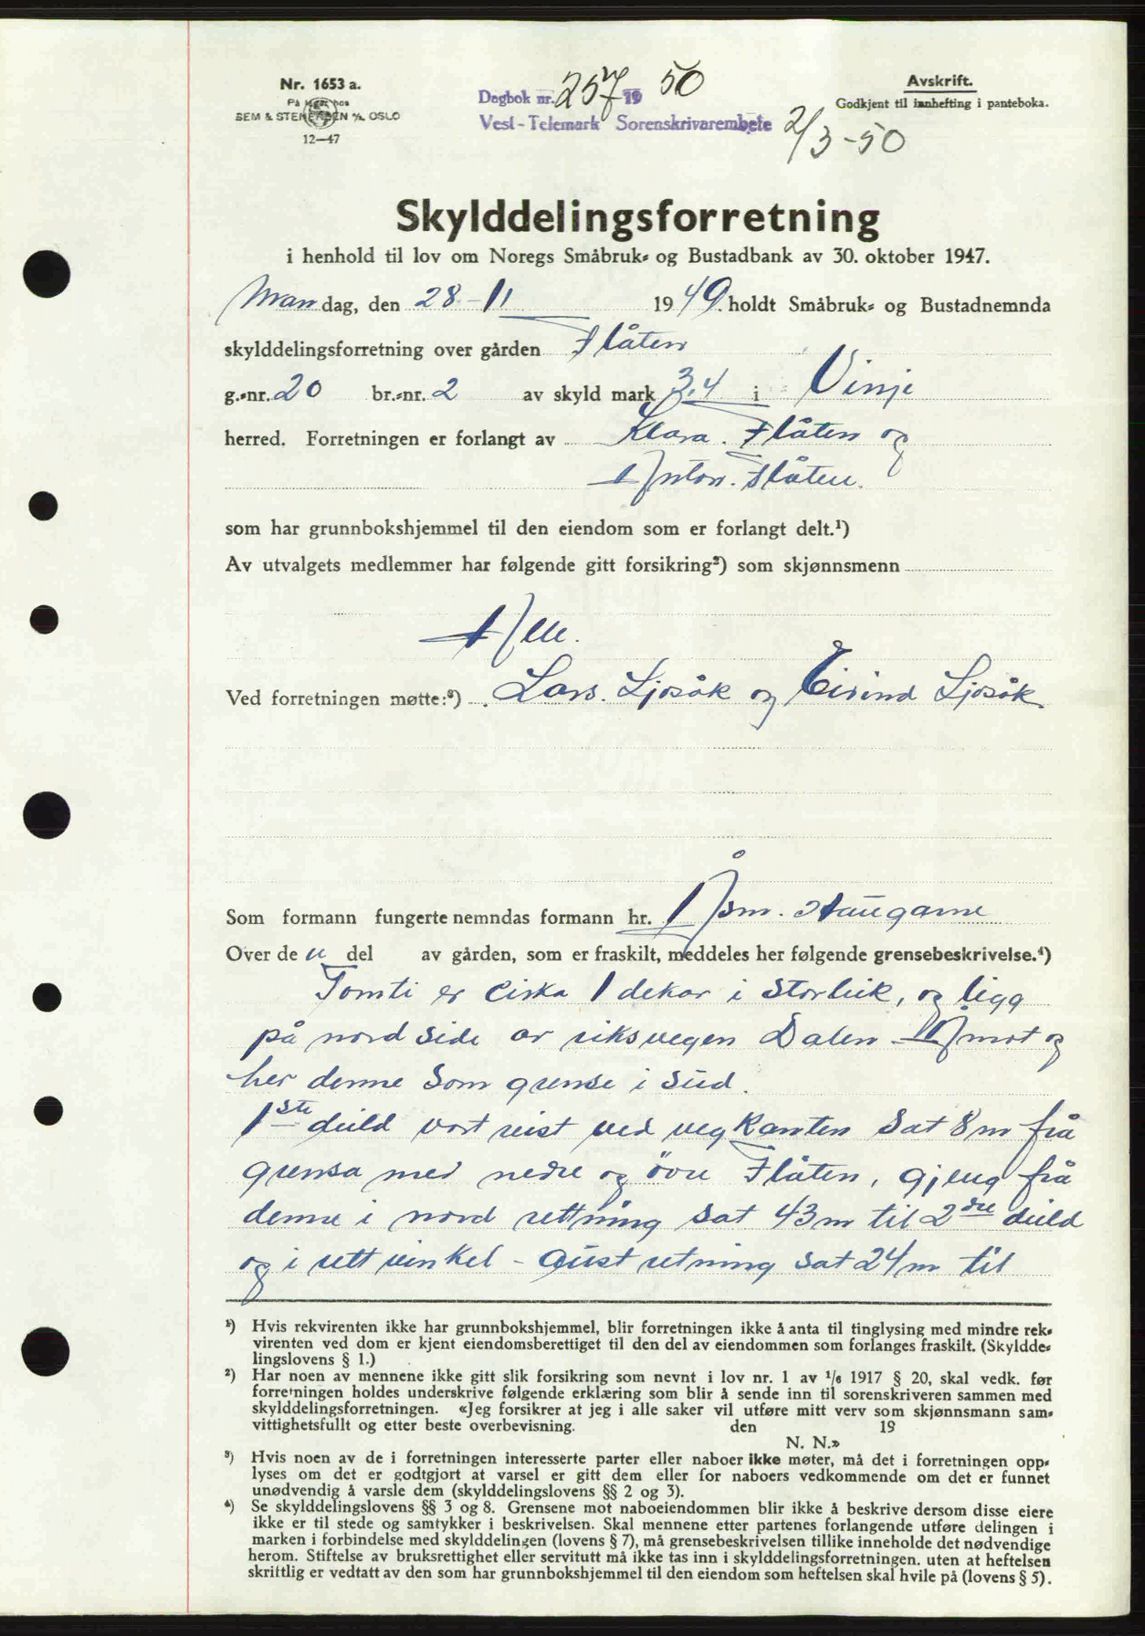 Nr. 1653 a.
På lager hos
SEM & STENERSEN A/S, OSLO
12-47
Dagbok nr. 257 19 50
Vest-Telemark Sorenskrivarembete
2/3-50
Avskrift.
Godkjent til innhefting i panteboka.
Skylddelingsforretning
i henhold til lov om Noregs Småbruk- og Bustadbank av 30. oktober 1947.
Mandag, den 28-11 1949. holdt Småbruk- og Bustadnemnda
skylddelingsforretning over gården Flåten
g.-nr. 20 br.-nr. 2 av skyld mark 3.4 i Vinje
herred. Forretningen er forlangt av Klara. Flåten og
Anton. Flåten.
som har grunnbokshjemmel til den eiendom som er forlangt delt.¹)
Av utvalgets medlemmer har følgende gitt forsikring²) som skjønnsmenn
Alle.
Ved forretningen møtte:³) Lars. Ljosåk og Eivind Ljosåk.
Som formann fungerte nemndas formann hr. Åsm. Haugann
Over de n del av gården, som er fraskilt, meddeles her følgende grensebeskrivelse.⁴)
Tomti er cirka 1 dekar i storleik, og ligg
på nord side av riksvegen Dalen - Åmot og
her denne som grense i Süd.
1ste deild vart reist ved vegkanten Sat 8 m frå
grensa med nedre og övre Flåten, gjeng frå
denne i nord rettning Sat 43 m til 2dre deild
og i rett vinkel - aust retning Sat 24 m til
¹) Hvis rekvirenten ikke har grunnbokshjemmel, blir forretningen ikke å anta til tinglysing med mindre rek-
virenten ved dom er kjent eiendomsberettiget til den del av eiendommen som forlanges fraskilt. (Skyldde-
lingslovens § 1.)
²) Har noen av mennene ikke gitt slik forsikring som nevnt i lov nr. 1 av 1/6 1917 § 20, skal vedk. før
forretningen holdes underskrive følgende erklæring som blir å sende inn til sorenskriveren sammen med
skylddelingsforretningen. «Jeg forsikrer at jeg i alle saker vil utføre mitt verv som skjønnsmann sam-
vittighetsfullt og etter beste overbevisning. den 19
N. N.»
³) Hvis noen av de i forretningen interesserte parter eller naboer ikke møter, må det i forretningen opp-
lyses om det er godtgjort at varsel er gitt dem eller for naboers vedkommende om det er funnet
unødvendig å varsle dem (skylddelingslovens §§ 2 og 3).
⁴) Se skylddelingslovens §§ 3 og 8. Grensene mot naboeiendommen blir ikke å beskrive dersom disse eiere
ikke er til stede og samtykker i beskrivelsen. Skal mennene etter partenes forlangende utføre delingen i
marken i forbindelse med skylddelingen (lovens § 7), må grensebeskrivelsen tillike inneholde det nødvendige
herom. Stiftelse av bruksrettighet eller servitutt må ikke tas inn i skylddelingsforretningen. uten at heftelsen
skriftlig er vedtatt av den som har grunnbokshjemmel til den eiendom som heftelsen skal hvile på (lovens § 5).